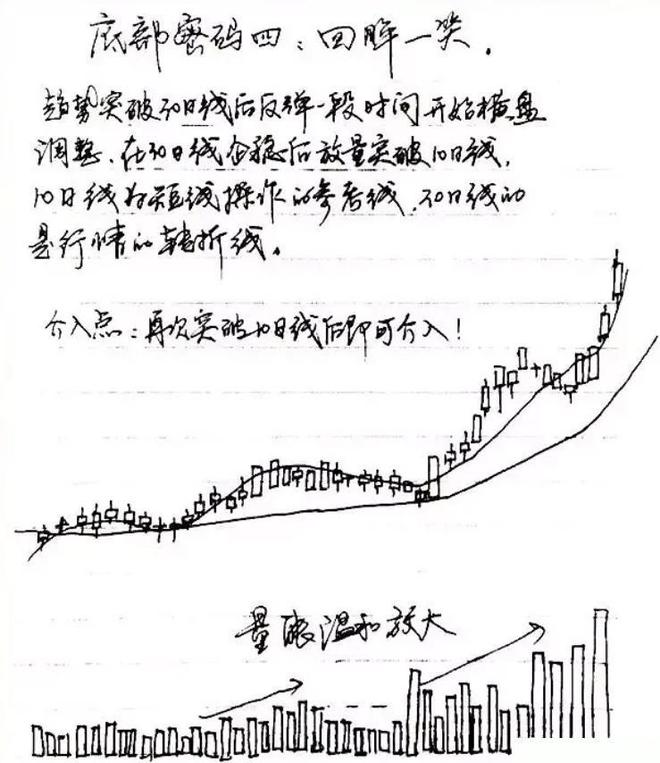 底部密码四：回眸一笑.
趋势突破30日线后反弹一段时间开始横盘
调整、在30日线企稳后放量突破10日线，
10日线为短线操作的参考线，30日线的
是行情的转折线。
介入点：再次突破10日线后即可介入！
量能温和放大